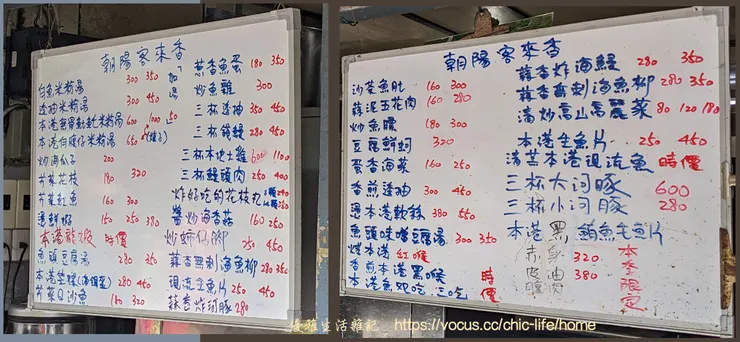 朝陽客來香
白魚米粉湯 300 350
透抽米粉湯 300 450
本港無單軟絲米粉湯 600 1000
本港白腹仔米粉湯 650
炒海瓜子 200
芥菜花枝 180 320
芥菜魠魚 160 300
燙鮮蚵 150 250 380
本港龍蝦 時價
魚頭豆腐湯 250 350
280 450
芥菜 180 320
加湯 50
蔥香魚蛋 180 350
炒魚雞 300
三杯透抽 350 450
三杯 280 450
三杯本地土雞 600 1100
三杯鰻頭肉 250 400
炸好吃的花枝丸
炒海香菇 160 250
炒師仔腳 250 450
蒜香無刺海魚柳 280 350
現流生魚片 250 450
蒜香炸河豚 280
朝陽客來香
沙茶魚肚 160 300
蒜泥五花肉 160 280
炒魚膘 300
豆腐鮮蚵 320
蛋香海菜 160 250
香煎透抽 300 450
燙本港軟絲 380 550
魚頭味噌豆腐湯 300 350
煙本港紅喉
香煎本港黑喉 時價
本港魚 吃三吃
蒜香炸海鰻 280 350
蒜香無刺海魚柳 280 350
清炒高山高麗菜 80 120 180
本港生魚片 250 450
清蒸本港現流魚 時價
三杯大河豚 600
三杯小河豚 280
本港黑鮪魚生魚片
赤身 320
皮油 380
腹肉
本季限定
優雅生活雜記 https://vocus.cc/chic-life/home